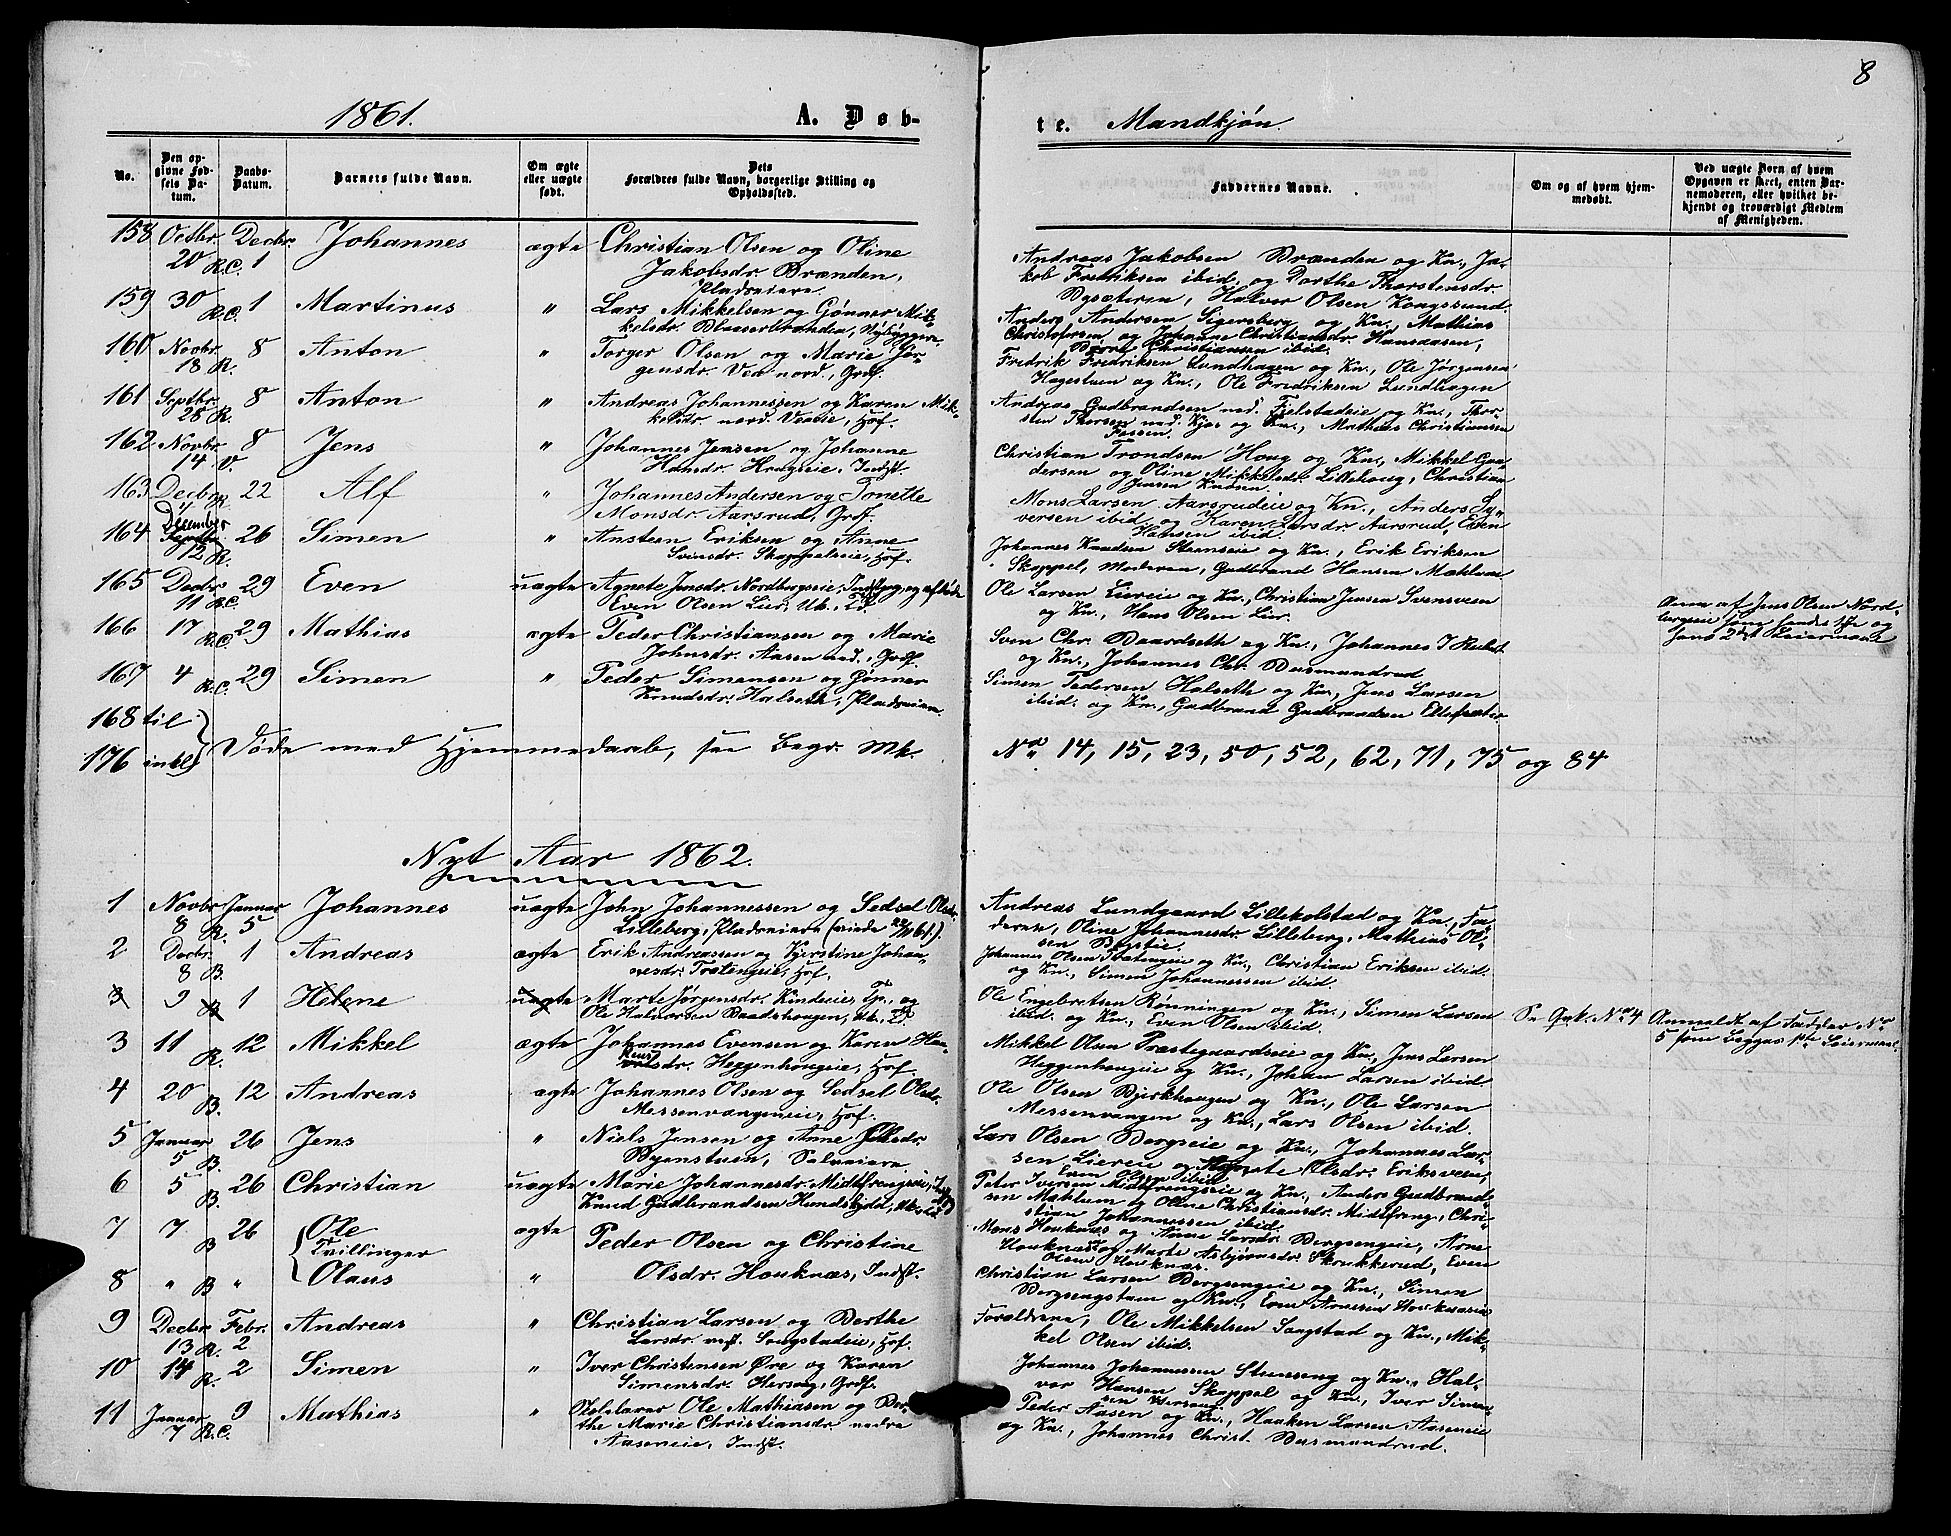 8
1861.
A. Døb-
te. Mandkjön.
No.
Den op-
givne Fød-
sels Da-
tum.
Daabs-
Datum.
Barnets fulde Navn.
Om ægte
eller uægte
født.
Dets
Forældres fulde Navn, borgerlige Stilling og
Opholdssted.
Faddernes Navne.
Om og af hvem hjem-
medøbt.
Ved uægte Born af hvem
Opgaven er skeet, enten Bar-
nemoderen, eller hvilket be-
kjendt og troværdigt Medlem
af Menigheden.
158 Octbr. 20 R.C. Decbr. 1 Johannes ægte Christian Olsen og Oline
Jakobsdr. Brænden,
Pladseiere.
Andreas Jakobsen Brænden og Kn., Ja-
kob Fredriksen ibid. og Dorthe Thorstensdr.
Bysæteren, Halvor Olsen Kongssund.
159 30 R.C. 1 Martinus " Lars Mikkelsen og Gønner Mik-
kelsdr. Blæserbrænden, Nybygger.
Anders Andersen Sigersberg og Kn., Mathias
Christofersen og Johanne Christiansdr. Hansaasen,
Bernt Christiansen ibid.
160 Novbr. 18 R. 8 Anton " Torger Olsen og Marie Jør-
gensdr. Ven nord., Grdf.
Fredrik Fredriksen Lundhagen og Kn., Ole Jørgensen
Hagestuen og Kn., Ole Fredriksen Lundhagen
161 Septbr. 28 R. 8 Anton " Andreas Johannessen og Karen Mik-
kelsdr. nord. Veneie, Hof.
Andreas Gudbrandsen ned. Fjelstadeie og Kn., Thor-
sten Thorsen ned. Kjos og Kn., Mathias Christianssen
162 Novbr. 14 V. 8 Jens " Johannes Jensen og Johanne
Hansdr. Hougseie, Indst.
Christian Trondsen Houg og Kn., Mikkel Gun-
dersen og Oline Mikkelsdr. Lillehoug, Christian
Jensen Knosen.
163 Decbr. 22 Alf " Johannes Andersen og Tonette
Monsdr. Aarsrud, Grdf.
Mons Larsen Aarsrudeie og Kn., Anders Sy-
versen ibid. og Karen Larsdr. Aarsrud, Even
Hansen ibid.
164 December 12 R. 26 Simen " Ansteen Eriksen og Anne
Svensdr. Skappelseie, Hof.
Johannes Knudsen Steenseie og Kn., Erik Eriksen
Skappel, Moderen, Gudbrand Hansen Mæhlum
165 Decbr. 11 R.C. 29 Even uægte Agnete Jensdr. Nordbergseie, Indst. og afdøde
Even Olsen Lier, Uk.
Ole Larsen Liereie og Kn., Christian Jensen Svensveen
og Kn., Hans Olsen Lier.
Anm. af Jens Olsen Nord-
bergseie som hendes 1ste og
hans 2det Leiermaal
166 17 R.C. 29 Mathias ægte Peder Christiansen og Marie
Johnsdr. Aasen ned., Grdf.
Sven Chr. Baardseth og Kn., Johannes
og Kn., Johannes Chr. Busmandrud
167 4 R.C. 29 Simen " Peder Simensen og Gønner
Knudsdr. Halseth, Pladseiere.
Simen Pedersen Halseth og Kn., Jens Larsen
ibid. og Kn., Gudbrand Gudbrandsen
168 til
176 inkl. Døde med Hjemmedaab, see Begr. Mk. No 14, 15, 23, 50, 52, 62, 71, 75 og 84
Nyt Aar 1862.
1 Novbr. 8 R. Januar 5 Johannes uægte John Johannessen og Sedsel Olsdr.
Lilleberg, Pladseiere
Andreas Lundgaard Lillekolstad og Kn., Fa-
deren, Oline Johannesdr. Lilleberg, Mathias Ol-
sen
2 Decbr. 8 B. 1 Andreas ægte Erik Andreassen og Kjerstine Johan-
nesdr. Tretengeie, Hof.
Johannes Olsen Tretengeie og Kn., Christian Eriksen ibid.
og Kn., Simen Johannessen ibid.
3 9 B 1 Helene uægte Marte Jørgensdr. Kindeeie, Tj., og
Ole Halvorsen Baadshougen, Uk.
Ole Engebretsen Rønningen og Kn., Simen Larsen
ibid. og Kn., Even Olsen ibid.
Se Qvk. No 4 Anmeldt af Fadder No
5 som begges 1ste Leiermaal.
3 11 R. 12 Mikkel ægte Johannes Evensen og Karen Hen-
riksdr. Heggenhougeie, Hof.
Mikkel Olsen Præstegaardseie og Kn., Jens Larsen
Heggenhougeie og Kn., Johan Larsen ibid.
4 20 B. 12 Andreas ægte Johannes Olsen og Sedsel Olsdr.
Messenvangeneie, Hof.
Ole Olsen Bjerkhougen og Kn., Ole Larsen
Messenvangen og Kn., Lars Olsen ibid.
5 Januar 5 B. 26 Jens " Niels Jensen og Anne Olsdr.
Byenstuen, Selveiere
Lars Olsen Bergseie og Kn., Johannes Lar-
sen Liereie og Agnete Olsdr. Eriksveen,
Even Olsen ibid.
6 5 B. 26 Christian uægte Marie Johannesdr. Midtfrengeie,
Knud Gudbrandsen Hundskydd,
Peter Iversen Midtfrengseie og Kn., Anders Gudbrand-
sen Mæhlum og Oline Christiansdr. Midtfreng, Chri-
stian Johannessen ibid.
7 7 B 26 Ole ægte Peder Olsen og Christine
Tvillinger
Mons Houknæs og Anne Larsdr. Bergsengeie, Arne
Houknæs og Marte Asbjørnsdr. Skrukkerud, Even
Olsen Houknæs.
8 " B " Olaus " Olsdr. Houknæs, Indst.
Christian Larsen Bergsengeie og Kn., Simen
Bergsengstuen og Kn., Even Arnesen Houknæseie
9 Decbr. 13 R. Febr. 2 Andreas " Christian Larsen og Berthe
Larsdr. Songstadeie, Hof.
Forældrene, Ole Mikkelsen Songstad og Kn., Mik-
kel Olsen ibid.
10 14 R. 2 Simen " Iver Christensen Øre og Karen
Simensdr. Hersoug, Grdf.
Johannes Johannessen Steenseng og Kn., Hal-
vor Hansen Skappel og Kn., Iver Simen-
sen Hersoug.
11 Januar 7 R.C. 9 Mathias " Skolelærer Ole Mathiasen og Ber-
the Marie Christiansdr. nedre
Aaseneie, Indst.
Peder Aasen og Kn., Haaken Larsen Aaseneie
og Kn., Johannes Christ. Busmandrud.